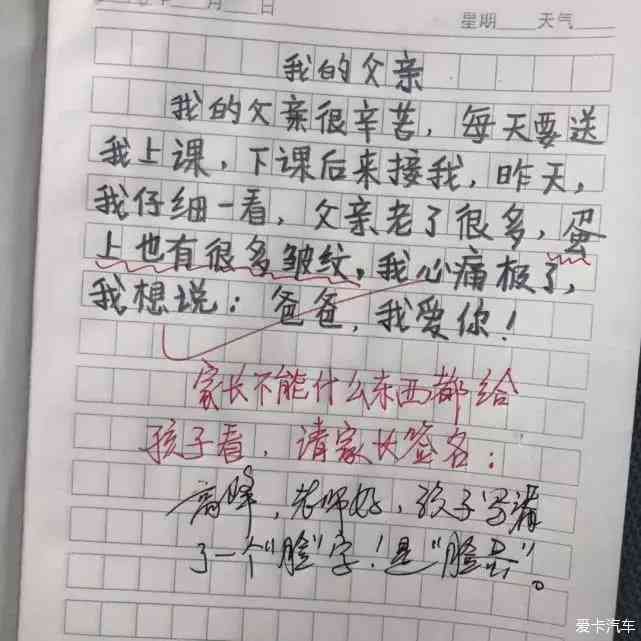 月 日
星期 天气
我的父亲
我的父亲很辛苦,每天要送
我上课,下课后来接我,昨天,
我仔细一看,父亲老了很多,蛋
上也有很多皱纹,我心痛极了,
我想说:爸爸,我爱你!
家长不能什么东西都给
孩子看,请家长签名:
高峰,老师好,孩子写漏
了一个“脸”字!是“脸蛋”。
爱卡汽车